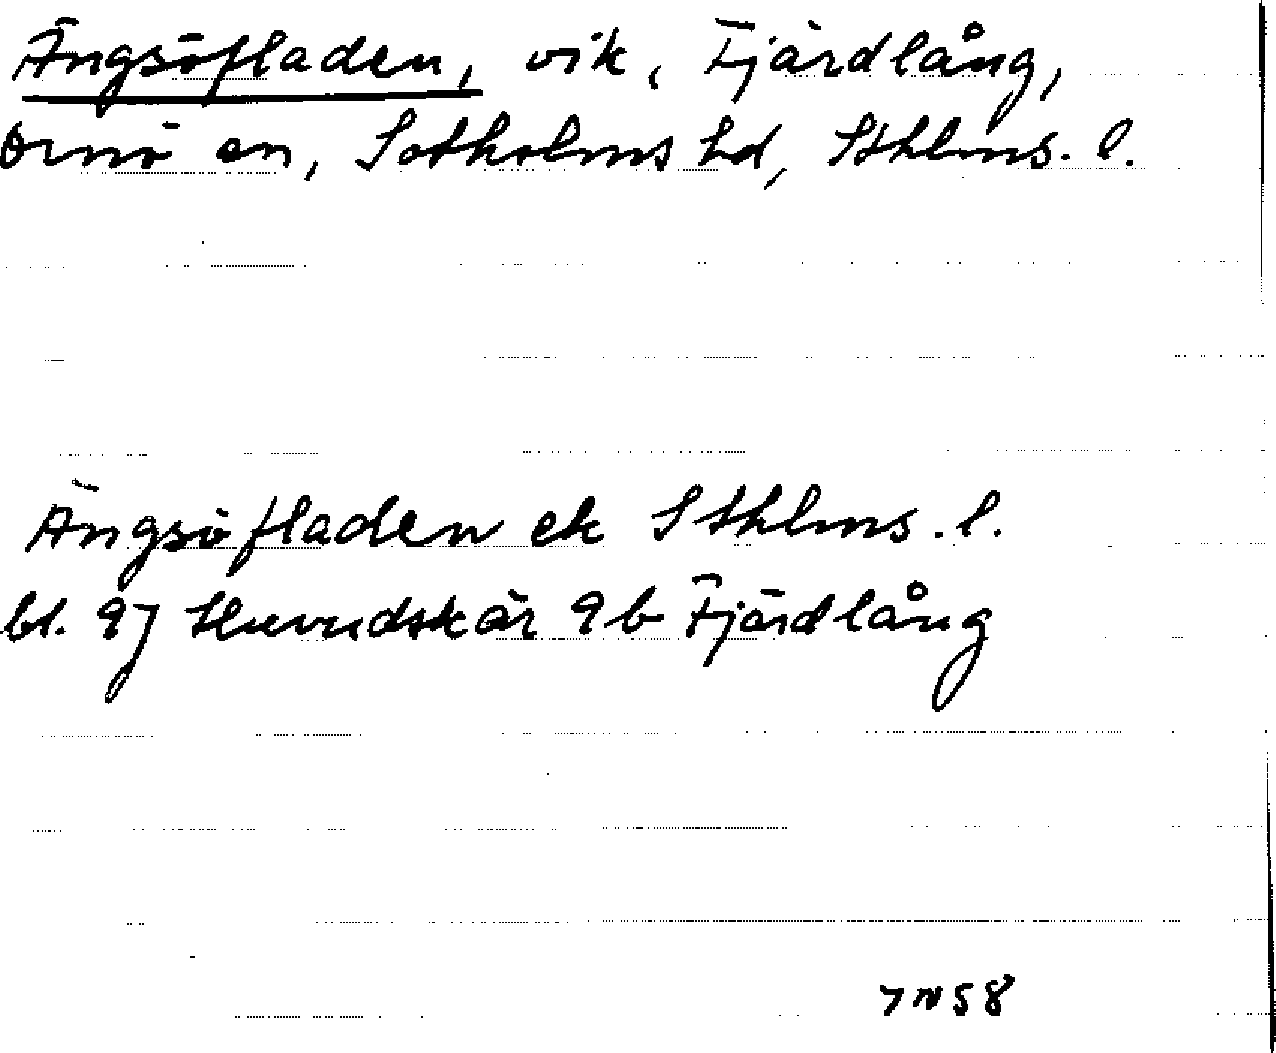 Ängsöfladen, vik, Fjärdlång,
Ornö sn, Sotholms hd, Sthlms. l.
Ängsöfladen ek Sthlms. l.
bl. 97 Huvudskär 9b Fjärdlång
7N58